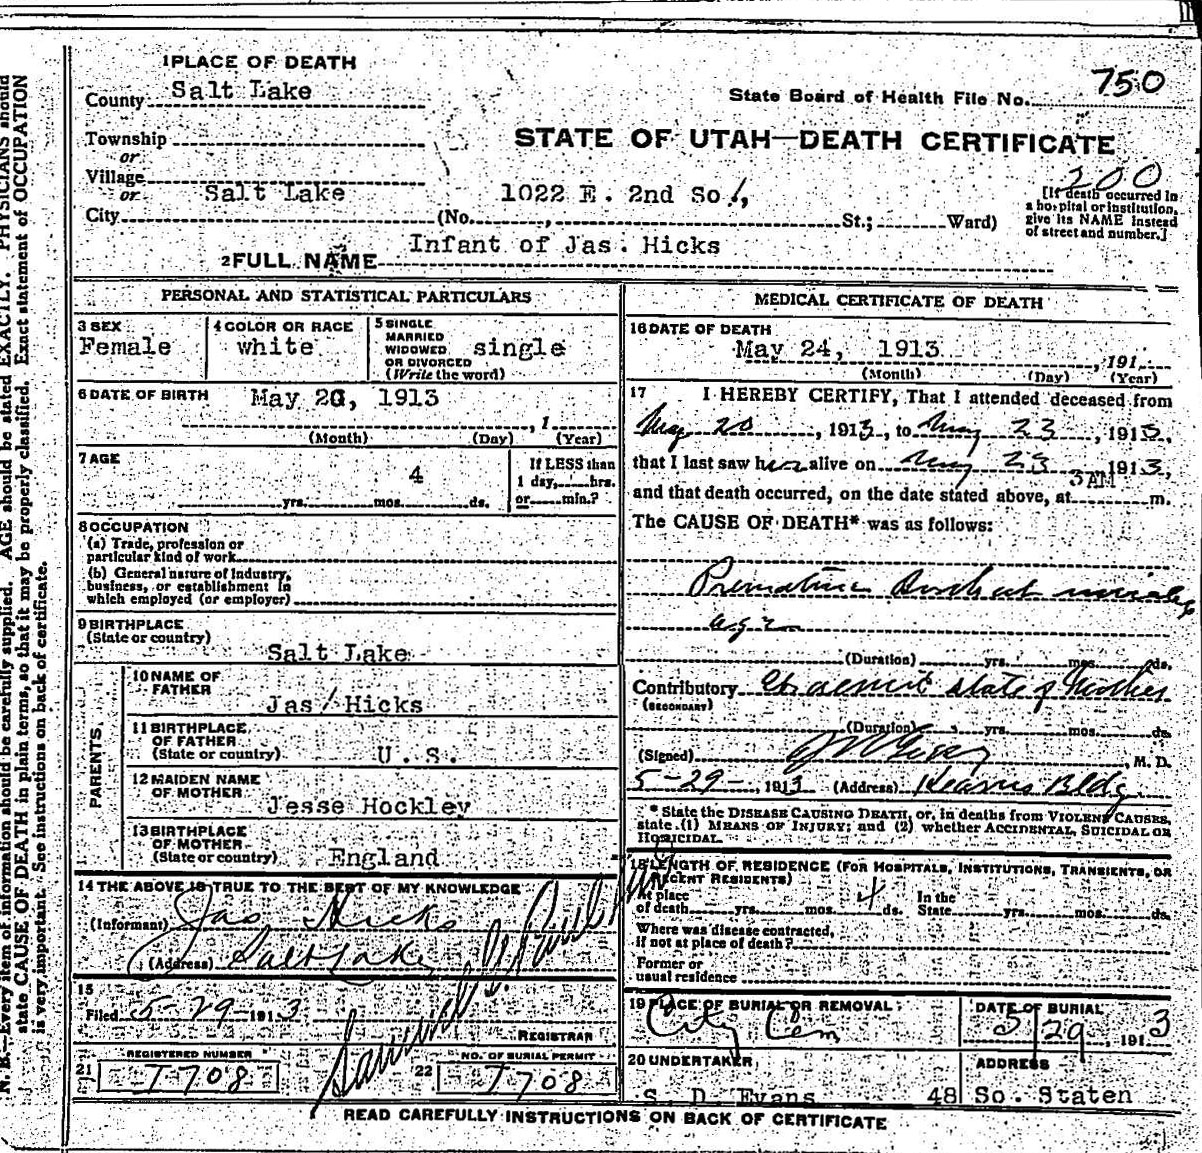 1 PLACE OF DEATH
County Salt Lake
State Board of Health File No. 750
Township
or
Village
or
City Salt Lake (No. 1022 E. 2nd So., St.; Ward)
STATE OF UTAH—DEATH CERTIFICATE
200
[If death occurred in
a hospital or institution,
give its NAME instead
of street and number.]
2 FULL NAME Infant of Jas. Hicks
PERSONAL AND STATISTICAL PARTICULARS
3 SEX
Female
4 COLOR OR RACE
white
5 SINGLE
MARRIED
WIDOWED
OR DIVORCED
(Write the word)
single
6 DATE OF BIRTH May 20, 1913
, 1
(Month) (Day) (Year)
7 AGE
4
yrs. mos. ds.
If LESS than
1 day, hrs.
or min.?
8 OCCUPATION
(a) Trade, profession or
particular kind of work
(b) General nature of industry,
business, or establishment in
which employed (or employer)
9 BIRTHPLACE
(State or country)
Salt Lake
PARENTS
10 NAME OF
FATHER
Jas/ Hicks
11 BIRTHPLACE
OF FATHER
(State or country) U.S.
12 MAIDEN NAME
OF MOTHER
Jesse Hockley
13 BIRTHPLACE
OF MOTHER
(State or country) England
14 THE ABOVE IS TRUE TO THE BEST OF MY KNOWLEDGE
(Informant) Jas Hicks
(Address) Salt Lake
15
Filed 5-29- 1913
REGISTRAR
REGISTERED NUMBER
21 I 708
NO. OF BURIAL PERMIT
22 I 708
MEDICAL CERTIFICATE OF DEATH
16 DATE OF DEATH
May 24, 1913
, 191
(Month) (Day) (Year)
17 I HEREBY CERTIFY, That I attended deceased from
May 20, 1913, to May 23, 1913,
that I last saw her alive on May 23 1913,
3AM
and that death occurred, on the date stated above, at m.
The CAUSE OF DEATH* was as follows:
Premature
age
(Duration) yrs. mos. ds.
Contributory state of Mother
(SECONDARY)
(Duration) yrs. mos. ds.
(Signed) , M. D.
5-29-, 1913 (Address) Kearns Bldg.
* State the DISEASE CAUSING DEATH, or, in deaths from VIOLENT CAUSES,
state (1) MEANS OF INJURY; and (2) whether ACCIDENTAL, SUICIDAL OR
HOMICIDAL.
18 LENGTH OF RESIDENCE (FOR HOSPITALS, INSTITUTIONS, TRANSIENTS, OR
RECENT RESIDENTS)
At place
of death yrs. mos. 4 ds.
In the
State yrs. mos. ds.
Where was disease contracted,
if not at place of death?
Former or
usual residence
19 PLACE OF BURIAL OR REMOVAL
City Cem
DATE OF BURIAL
5/29, 1913
20 UNDERTAKER
S. D. Evans
ADDRESS
48 So. Staten
READ CAREFULLY INSTRUCTIONS ON BACK OF CERTIFICATE
N. B.—Every item of information should be carefully supplied. AGE should be stated EXACTLY. PHYSICIANS should
state CAUSE OF DEATH in plain terms, so that it may be properly classified. Exact statement of OCCUPATION
is very important. See instructions on back of certificate.